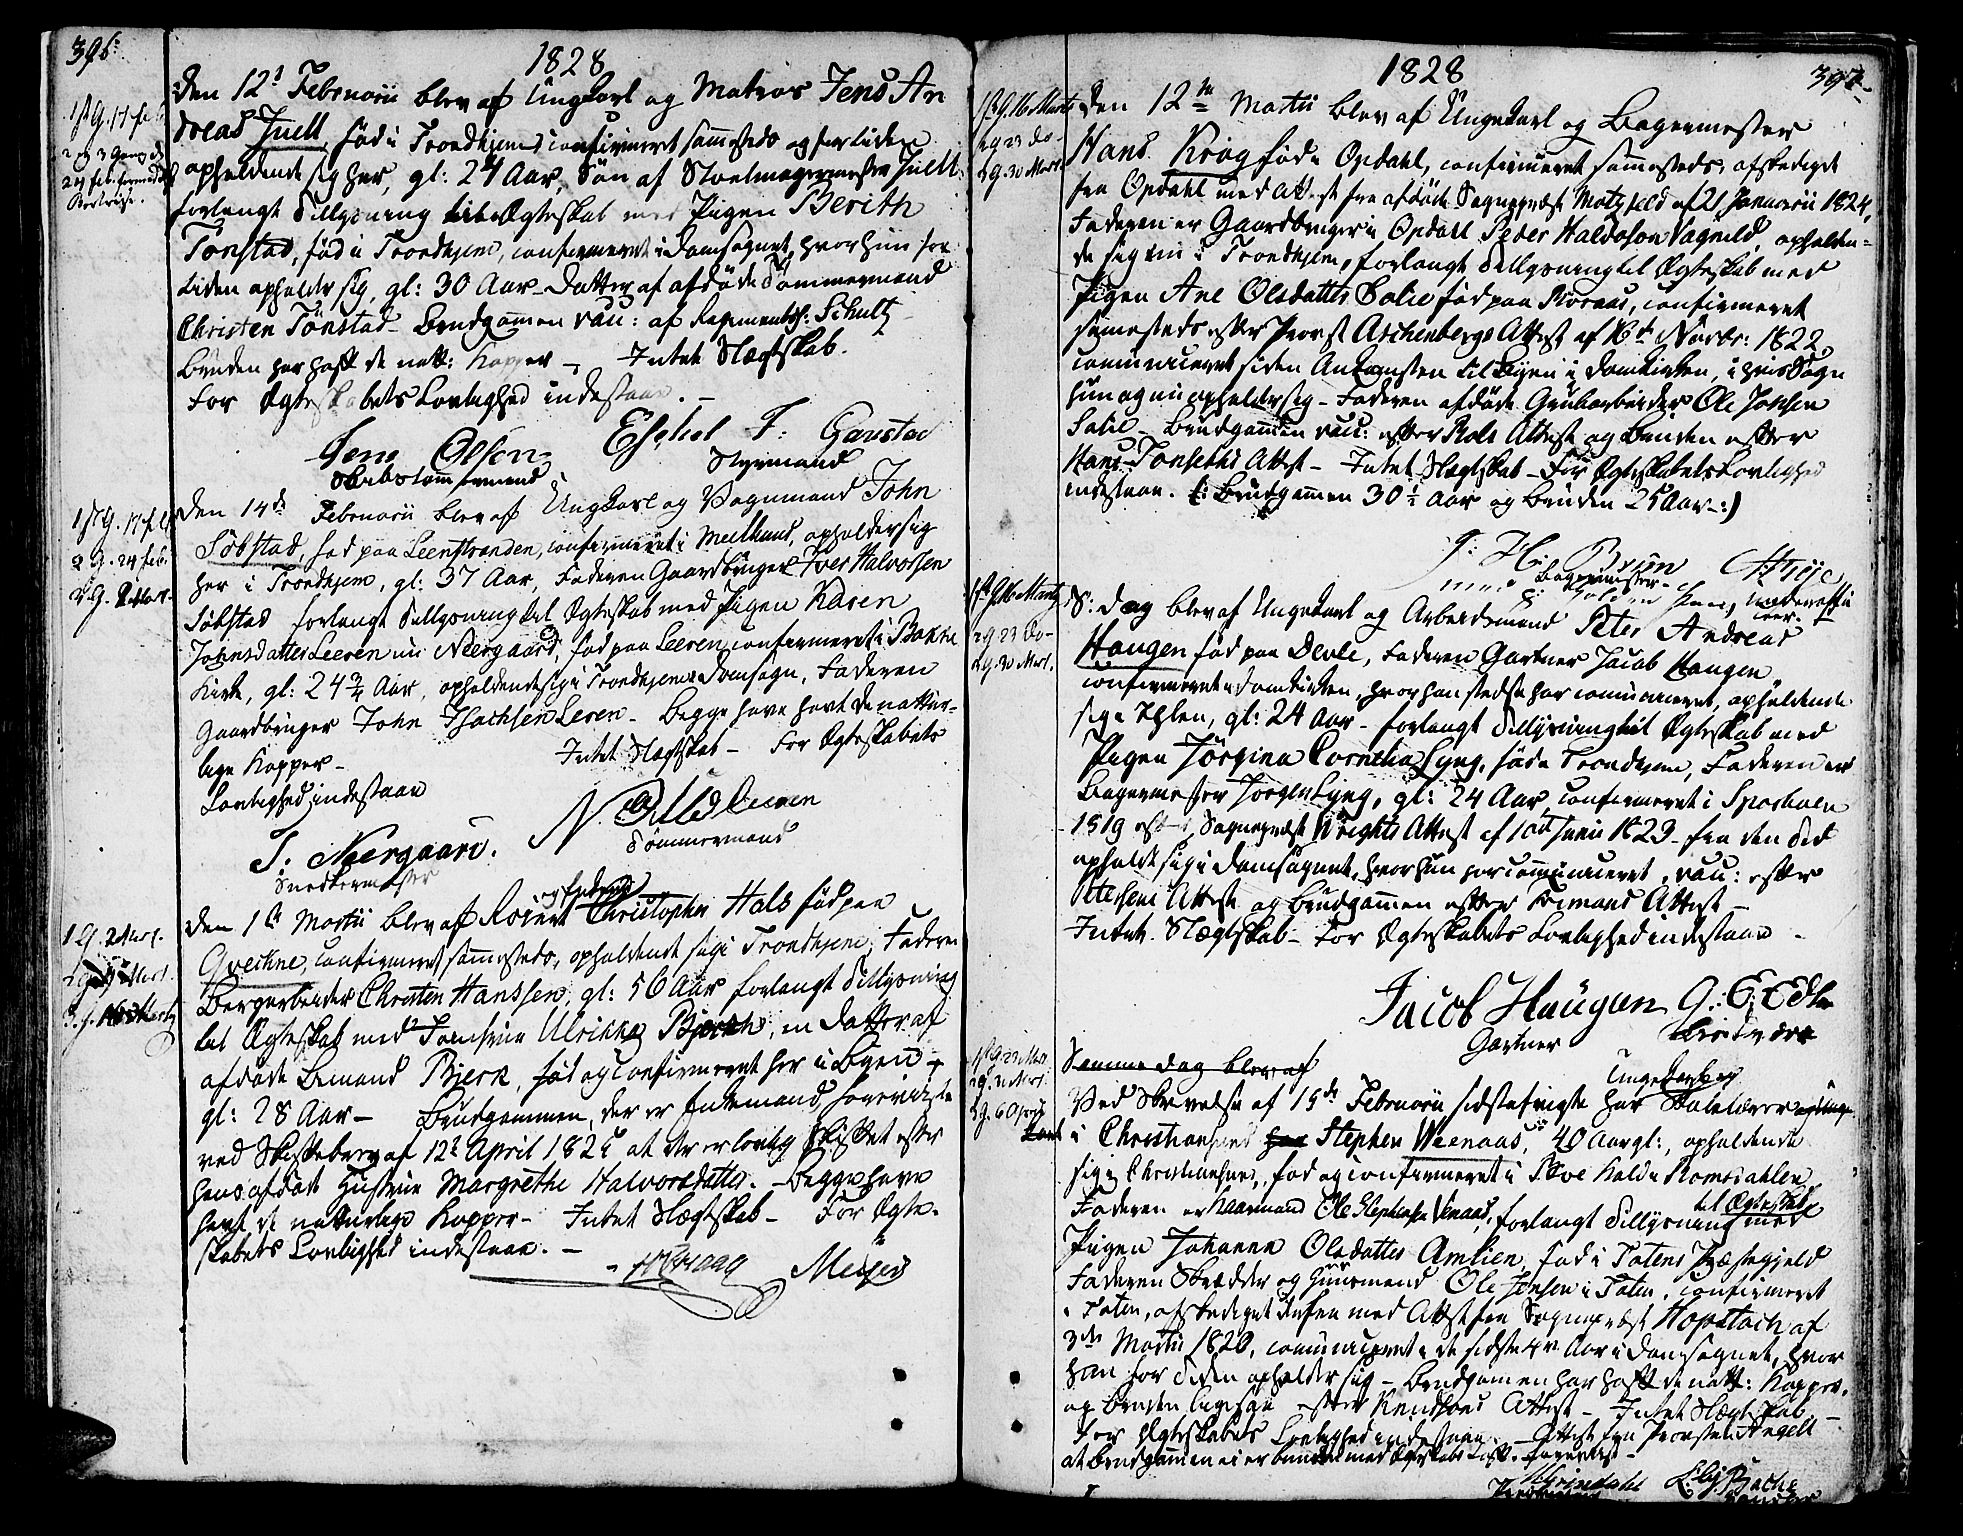 396.
1828
1ste G. 17 feb.
2 og 3 Gang d.
24 feb.
den 12te Februarii blev af Ungkarl og Matros Jens An
dreas Juell, fød i Trondhjem, confirmeret sammesteds og for tiden
opholdende sig her, gl: 24 Aar, Søn af Stoelmagermester Juell,
forlangt Tillysning til Ægteskab med Pigen Berith
Tønstad, fød i Trondhjem, confirmeret i Domsognet, hvor hun for
tiden opholder sig, gl: 30 Aar - Datter af afdøde Tømmermand
Christen Tønstad - Brudgommen vac: af Regimentsch: Schultz
Bruden har haft de natt: Kopper - Intet Slægtskab.
For Ægteskabets Lovlighed indestaar. -
Jens Olsen Eschel F: Garstad
Skibstømmermand Styrmand
1ste G. 17 feb.
2 G. 24 feb.
3 G.
Den 14de Februarii blev af Ungkarl og Vognmand John
Søbstad, fød paa Leenstranden, confirmeret i Meelhuus, opholder sig
her i Trondhjem, gl: 37 Aar, Faderen Gaardbruger Iver Halvorsen
Søbstad forlangt Tillysning til Ægteskab med Pigen Karen
Johnsdatter Leeren nu Neergaard, fød paa Leeren, confirmeret i Baklke
Kirke, gl: 24 3/4 Aar, opholdende sig i Trondhjems Domsogn, Faderen
Gaardbruger John Isachsen Leren - Begge have havt de natur-
lige Kopper - Intet Slægtskab - For Ægteskabets
Lovlighed indestaar
J: Neergaard. N. Leeren
Snedkermester Tømmermand
1 G. 2 Mart.
2 G. 9 Mart.
3. G. 16 Marty
og Enkem:
Den 1ste Martii blev af Christopher Hals fød paa
Qvechne, confirmeret sammesteds, opholdende sig i Trondhjem, Faderen
Bergarbeider Christen Hanssen, gl: 56 Aar forlangt Tillysning
til Ægteskab med Jomfrue Ulrikke Bjerck, en Datter af
afdøde Bjerck, fød og confirmeret her i Byen -
gl: 28 Aar - Brudgommen, der er Enkemand, foreviiste
ved Skiftebrev af 12te April 182 at der er lovlig skiftet efter
hans afdøde Hustrue Margrethe Halvorsdatter. - Begge have
havt de naturlige Kopper - Intet Slægtskab - For Ægte-
skabets Lovlighed indestaar. -
Meyer
397
1828
1ste G. 16 Marts
2 G 23 do -
3 G. 30 Mart.
Den 12te Martii blev af Ungekarl og Bagermester
Hans Krog fød i Opdahl, confirmeret sammesteds, afskediget
fra Opdahl med Attest fra afdøde Sognepræst Motzfeld af 21 Januarii 1824,
Faderen er Gaardbruger i Opdahl Peder Haldosøn Vagnild, opholden-
de sig nu i Trondhjem, forlangt Tillysning til Ægteskab med
Pigen Ane Olsdatter Salie fød paa Röraas, confirmeret
sammesteds efter Provst Aschenbergs Attest af 16de Novbr: 1822,
communiceret siden Ankomsten til Byen i Domkirken, i hvis Sogn
hun og nu opholder sig - Faderen afdøde Grubearbeider Ole Jonsen
Salie - Brudgommen vac: efter Attest og Bruden efter
Hans Tønseths Attest - Intet Slægtskab - For Ægteskabets Lovlighed
indestaar. (: Brudgommen 30 1/2 Aar og Bruden 25 Aar -:)
Bagermester
1ste G. 16 Marty
2 G 23 do -
3 G. 30 Mart.
S: Dag blev af Ungekarl og Arbeidsmand Peter Andreas
Haugen fød paa Devle, Faderen Gartner Jacob Haugen
confirmeret i Domkirken, hvor han stedse har communiceret, opholdende
sig i Ihlen, gl: 24 Aar - forlangt Tillysning til Ægteskab med
Pigen Jörgina Cornelia Lyng, fød i Trondhjem, Faderen er
Bagermester Jørgen Lyng, gl: 24 Aar confirmeret i Sparboen
1819 efter Sognepræst Wrights Attest af 10de Junii 1823 - fra den Tid
opholdt sig i Domsognet, hvor hun har communiceret, vac: efter
Attest og Brudgommen efter Attest -
Intet Slægtskab - For Ægteskabets Lovlighed indestaar -
Jacob Haugen
Gartner
1ste G. 23 Mart.
2 G. Mart.
3 G. 6 April
Samme Dag blev af
Ungekarl og
Ved Skrivelse af 15de Februarii sidstafvigte har Skolelærer
i Christiansund har Stephen Weenaas, 40 Aar gl:, opholdende
sig i Christiansund, fød og confirmeret i i Romsdahlen,
til Ægteskab
Faderen er Ole Stephensen Venaas, forlangt Tillysning med
Pigen Johanna Olsdatter Amlien, fød i Totens Præstegjeld
Faderen Skrædder og Huusmand Ole Jensen i Toten, confirmeret
i Toten, afskediget derfra med Attest fra Sognepræst Hopstoch af
3die Martii 1820, communiceret i de sidste 4re Aar i Domsognet, hvor
hun for Tiden opholder sig - Brudgommen har haft de natt: Kopper,
og Bruden ligesaa efter Attest - Intet Slægtskab -
For Ægteskabets Lovlighed indestaar. - Attest fra Provsten Angell
at Brudgommen ei er bundet med Ægteskabs Løfte, forevist -
Grindahl Bache